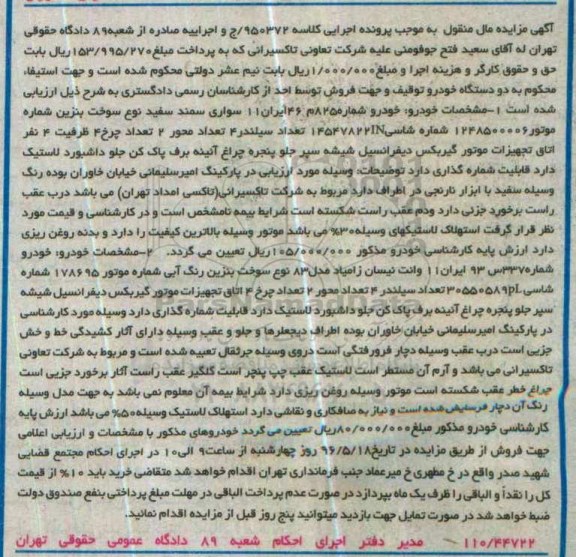 آگهی مزایده مال منقول به موجب پرونده اجرایی کلاسه ۹۵۰۳۷۲/ج و اجراییه صادره از شعبه۸۹ دادگاه حقوقی
تهران له آقای سعید فتح جوفومنی علیه شرکت تعاونی تاکسیرانی که به پرداخت مبلغ۱۵۳/۹۹۵/۲۷۰ریال بابت
حق و حقوق کارگر و هزینه اجرا و مبلغ۱/۰۰۰/۰۰۰ریال بابت نیم عشر دولتی محکوم شده است و جهت استیفاء
محکوم به دو دستگاه خودرو توقیف و جهت فروش توسط احد از کارشناسان رسمی دادگستری به شرح ذیل ارزیابی
شده است ۱-مشخصات خودرو: خودرو شماره۸۲۵م ۴۶ایران۱۱ سواری سمند سفید نوع سوخت بنزین شماره
موتور۱۲۴۸۵۰۰۰۰۶ شماره شاسی۱۴۵۴۷۸۲۲IN تعداد سیلندر۴ تعداد محور ۲ تعداد چرخ۴ ظرفیت ۴ نفر
اتاق تجهیزات موتور گیربکس دیفرانسیل شیشه سپر جلو پنجره چراغ آئینه برف پاک کن جلو داشبورد لاستیک
دارد قابلیت شماره گذاری دارد توضیحات: وسیله مورد ارزیابی در پارکینگ امیرسلیمانی خیابان خاوران بوده رنگ
وسیله سفید با ابزار نارنجی در اطراف دارد مربوط به شرکت تاکسیرانی(تاکسی امداد تهران) می باشد درب عقب
راست برخورد جزئی دارد ودم عقب راست شکسته است شرایط بیمه نامشخص است و در کارشناسی و قیمت مورد
نظر قرار گرفت استهلاک لاستیکهای وسیله۳۰% می باشد موتور وسیله بالاترین کیفیت را دارد و بدنه روغن ریزی
دارد ارزش پایه کارشناسی خودرو مذکور ۱۰۵/۰۰۰/۰۰۰ریال تعیین می گردد. ۲-مشخصات خودرو: خودرو
شماره۳۳۷س ۹۳ ایران۱۱ وانت نیسان زامیاد مدل۸۳ نوع سوخت بنزین رنگ آبی شماره موتور ۱۷۸۶۹۵ شماره
شاسی ۳۰۵۵۰۵۸۹pL تعداد سیلندر ۴ تعداد محور ۲ تعداد چرخ ۴ اتاق تجهیزات موتور گیربکس دیفرانسیل شیشه
سپر جلو پنجره چراغ آئینه برف پاک کن جلو داشبورد لاستیک دارد قابلیت شماره گذاری دارد وسیله مورد کارشناسی
در پارکینگ امیرسلیمانی خیابان خاوران بوده اطراف دیجعلرها و جلو و عقب وسیله دارای آثار کشیدگی خط و خش
جزیی است درب عقب وسیله دچار فرورفتگی است دروی وسیله جرثقال تعبیه شده است و مربوط به شرکت تعاونی
تاکسیرانی می باشد و آرم آن مستطر است لاستیک عقب چپ پنچر است گلگیر عقب راست آثار برخورد جزیی است
چراغ خطر عقب شکسته است موتور وسیله روغن ریزی دارد شرایط بیمه آن معلوم نمی باشد به جهت مدل وسیله
رنگ آن دچار فرسایش شده است و نیاز به صافکاری و نقاشی دارد استهلاک لاستیک وسیله۵۰% می باشد ارزش پایه
کارشناسی خودرو مذکور مبلغ۸۰/۰۰۰/۰۰۰ریال تعیین می گردد خودروهای مذکور با مشخصات و ارزیابی اعلامی
جهت فروش از طریق مزایده در تاریخ۹۶/۵/۱۸ روز چهارشنبه از ساعت۹ الی۱۰ در اجرای احکام مجتمع قضایی
شهید صدر واقع در خ مطهری خ میرعماد جنب فرمانداری تهران اقدام خواهد شد متقاضی خرید باید ۱۰% از قیمت
کل را نقداً و الباقی را ظرف یک ماه بپردازد در صورت عدم پرداخت الباقی در مهلت مبلغ پرداختی بنفع صندوق دولت
ضبط خواهد شد در صورت تمایل جهت بازدید میتوانید پنج روز قبل از مزایده اقدام نمائید.
۱۱۰/۴۴۷۲۲ مدیر دفتر اجرای احکام شعبه ۸۹ دادگاه عمومی حقوقی تهران